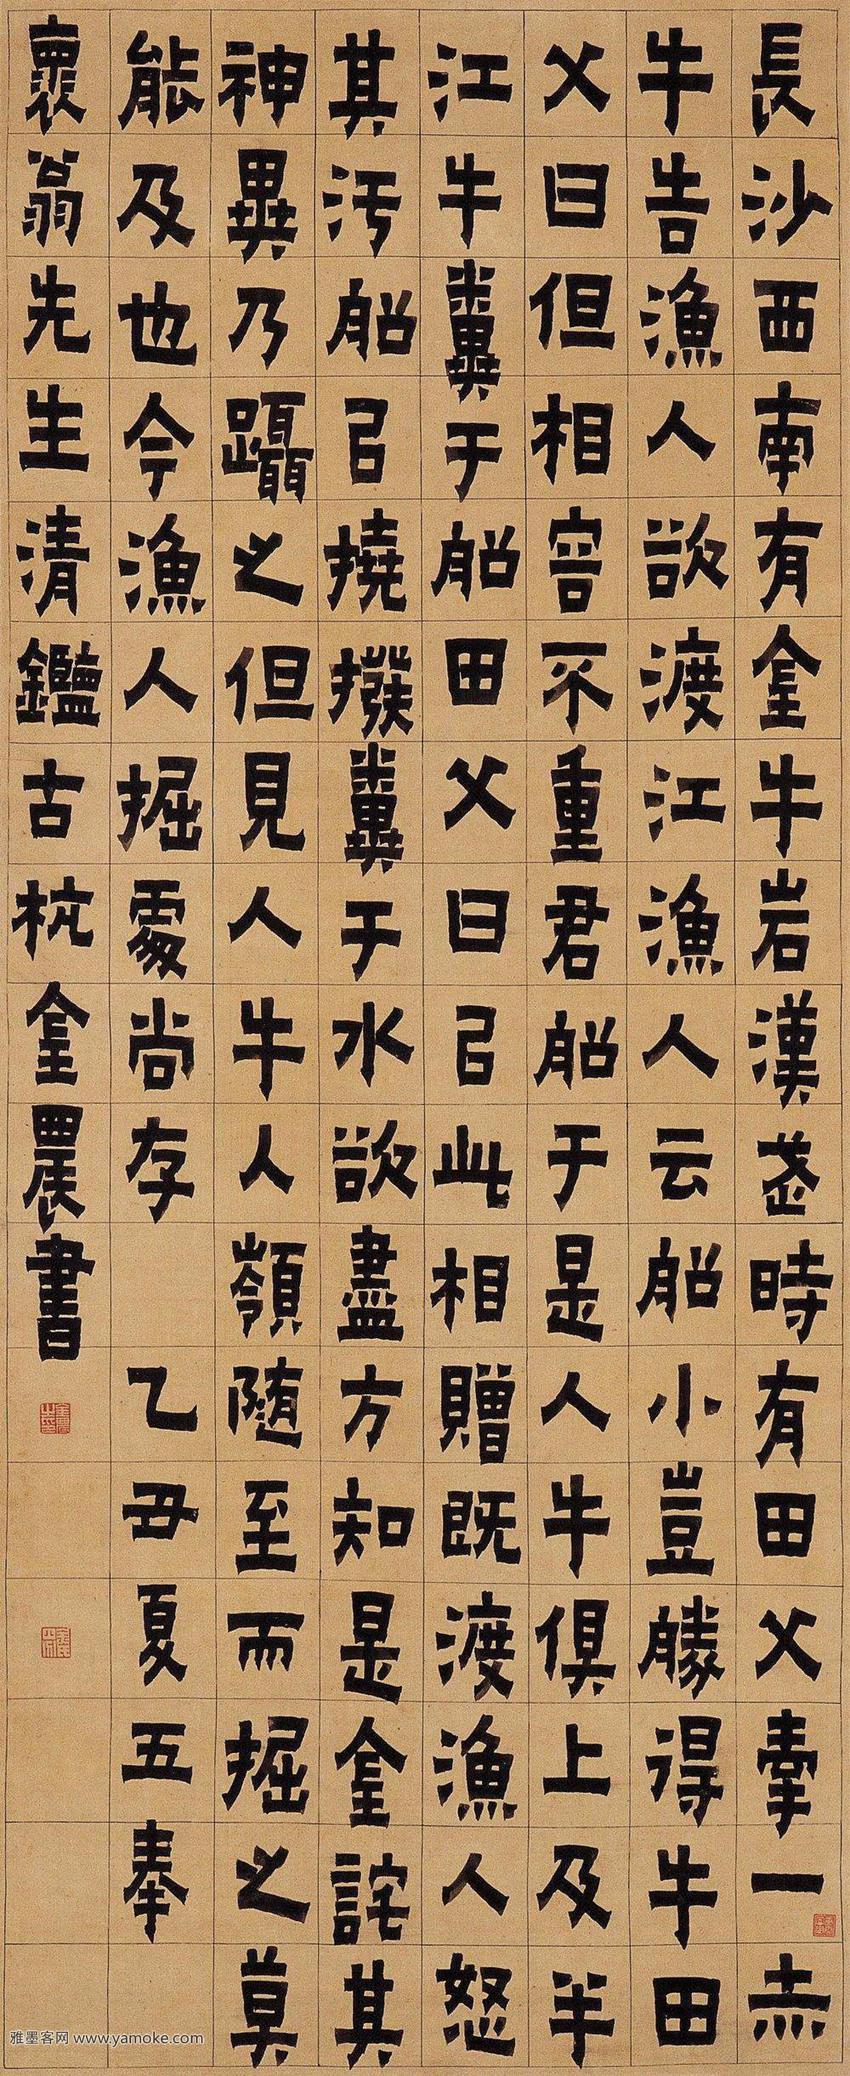 長沙西南有金牛岩漢武時有田父牽一赤
牛告漁人欲渡江漁人云船小豈勝得牛田
父曰但相容不重君船于是人牛俱上及半
江牛糞于船田父曰以此相贈既渡漁人怒
其汚船以撓撥糞于水欲盡方知是金詫其
神異乃躡之但見人牛人嶺隨至而掘之莫
能及也今漁人掘處尚存 乙丑夏五奉
褱翁先生清鑑古杭金農書
雅墨客网 www.yamoke.com